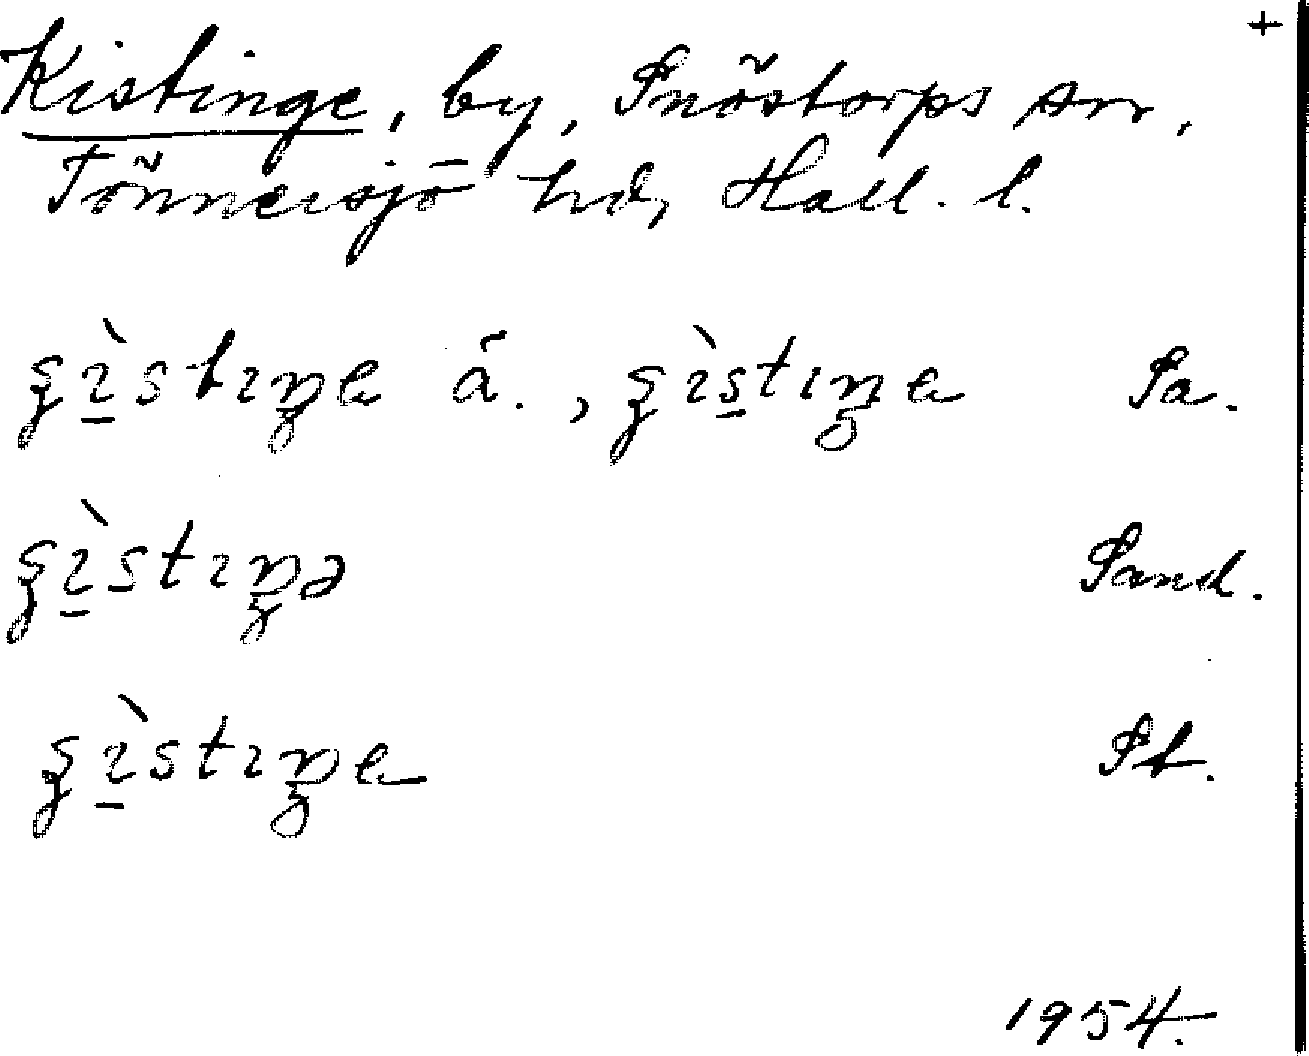 +
Kistinge, by, Snöstorps sn,
Tönnersjö hd, Hall. l.
ʂı̱̀stıŋe ä., ʂı̀s̱tıŋe Sa.
ʂı̱̀stıŋə Sand.
ʂı̱̀stıŋe St.
1954.